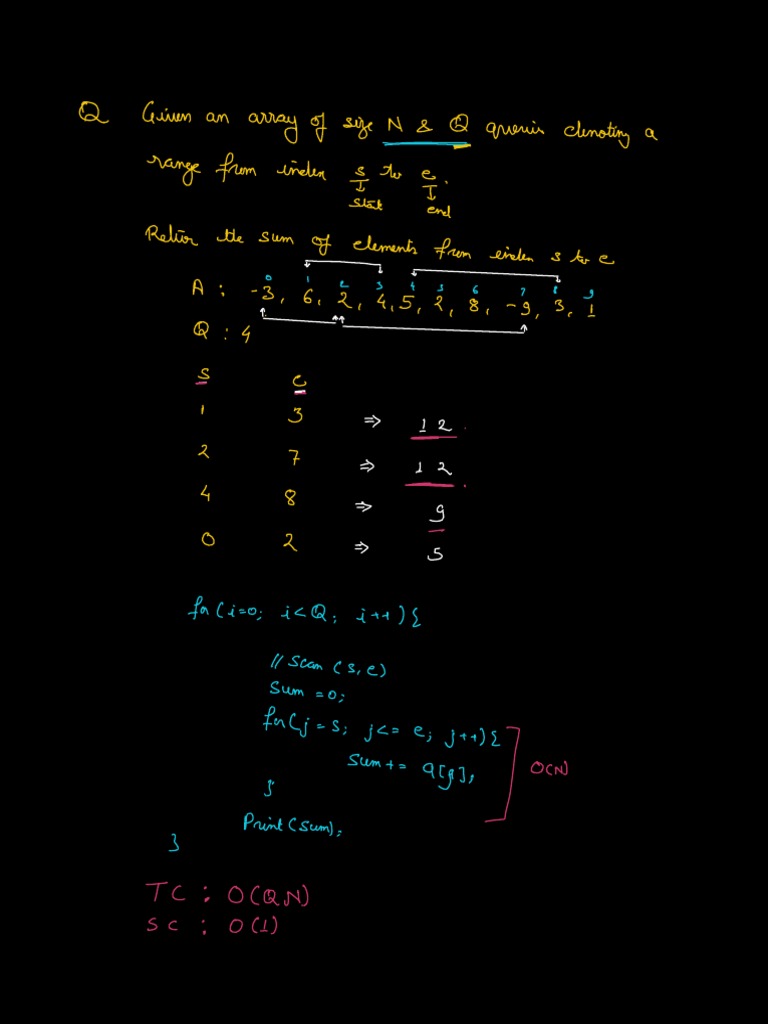 Q Given an array of size N & Q queries denoting a
range from index s to e.
start end
Return the sum of elements from index s to e
0 1 2 3 4 5 6 7 8 9
A : -3, 6, 2, 4, 5, 2, 8, -9, 3, 1
Q : 4
s e
1 3 ⇒ 12.
2 7 ⇒ 12.
4 8 ⇒ 9
0 2 ⇒ 5
for(i=0; i<Q; i++){
// Scan (s, e)
Sum = 0;
for(j = s; j<= e; j++){
Sum += a[j];
} O(N)
Print(Sum);
}
TC : O(QN)
SC : O(1)